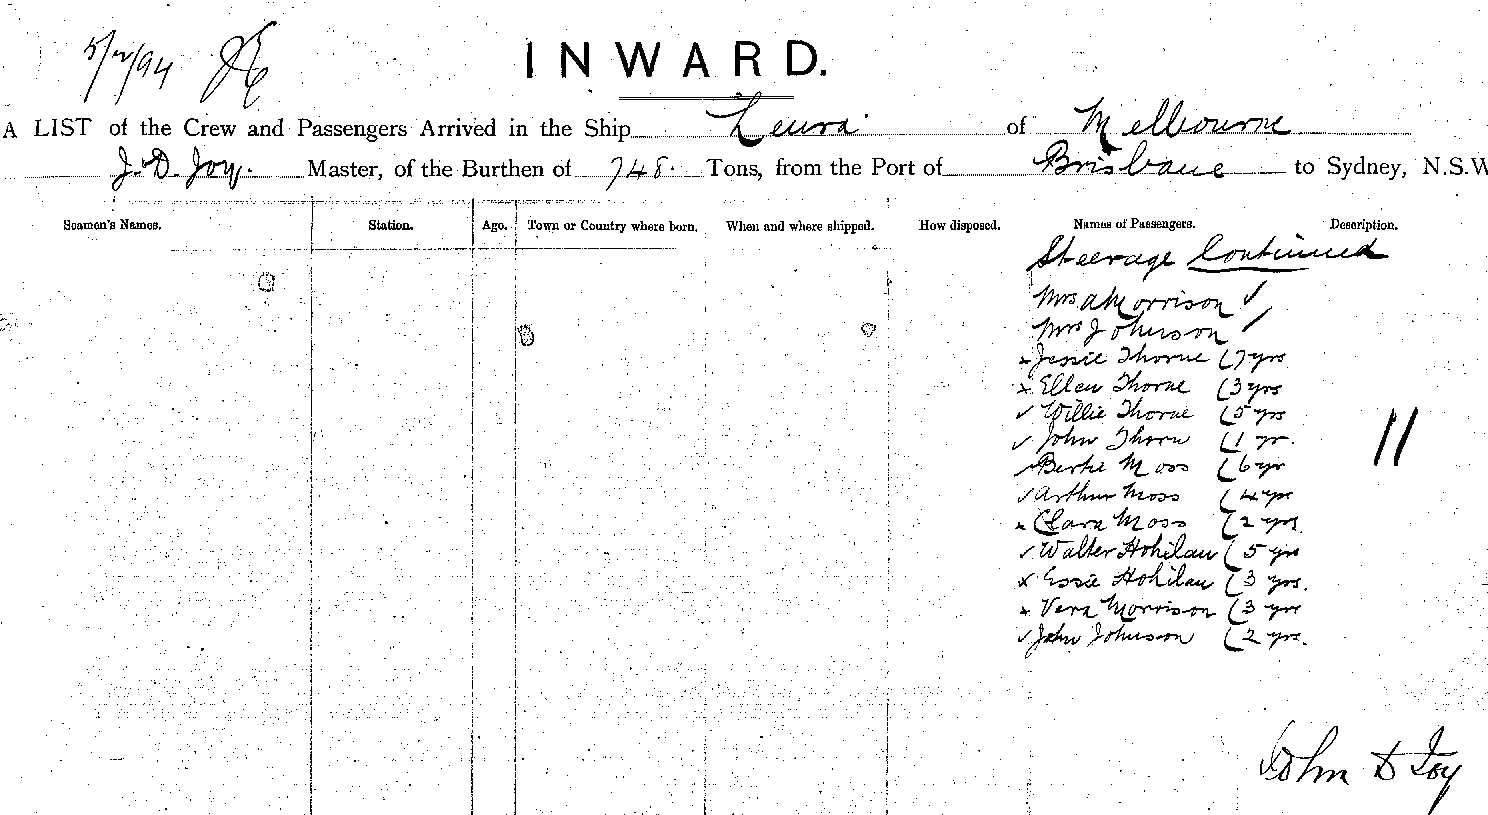 5/2/94
INWARD.
A LIST of the Crew and Passengers Arrived in the Ship Leura of Melbourne
J. D. Joy. Master, of the Burthen of 748. Tons, from the Port of Brisbane to Sydney, N.S.W
Seamen's Names. Station. Age. Town or Country where born. When and where shipped. How disposed. Names of Passengers. Description.
Steerage Continued
Mrs A Morrison ✓
Mrs Johnson ✓
x Jessie Thorne (7 yrs
x Ellen Thorne (3 yrs
✓ Willie Thorne (5 yrs
✓ John Thorn (1 yr.
✓ Bertie Moss (6 yr
11
✓ Arthur Moss (4 yrs
x Clara Moss (2 yrs.
✓ Walter Hohilau (5 yrs
x Essie Hohilau (3 yrs.
x Vera Morrison (3 yrs
✓ John Johnson (2 yrs.
John D Joy